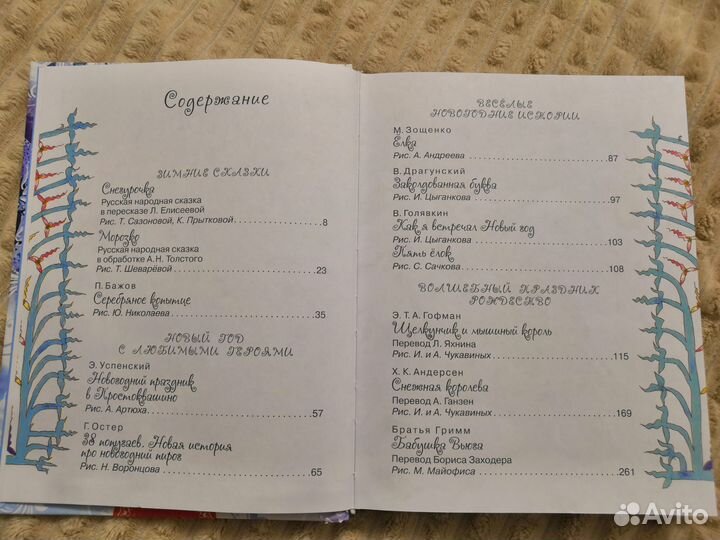 Содержание
ЗИМНИЕ СКАЗКИ
Снегурочка
Русская народная сказка
в пересказе Л. Елисеевой
Рис. Т. Сазоновой, К. Прытковой 8
Морозко
Русская народная сказка
в обработке А. Н. Толстого
Рис. Т. Шеварёвой 23
П. Бажов
Серебряное копытце
Рис. Ю. Николаева 35
НОВЫЙ ГОД
С ЛЮБИМЫМИ ГЕРОЯМИ
Э. Успенский
Новогодний праздник
в Простоквашино
Рис. А. Артюха 57
Г. Остер
38 попугаев. Новая история
про новогодний пирог
Рис. Н. Воронцова 65
ВЕСЁЛЫЕ
НОВОГОДНИЕ ИСТОРИИ
М. Зощенко
Ёлка
Рис. А. Андреева 87
В. Драгунский
Заколдованная буква
Рис. И. Цыганкова 97
В. Голявкин
Как я встречал Новый год
Рис. И. Цыганкова 103
Пять ёлок
Рис. С. Сачкова 108
ВОЛШЕБНЫЙ ПРАЗДНИК
РОЖДЕСТВО
Э. Т. А. Гофман
Щелкунчик и мышиный король
Перевод Л. Яхнина
Рис. И. и А. Чукавиных 115
Х. К. Андерсен
Снежная королева
Перевод А. Ганзен
Рис. И. и А. Чукавиных 169
Братья Гримм
Бабушка Вьюга
Перевод Бориса Заходера
Рис. М. Майофиса 261
Avito